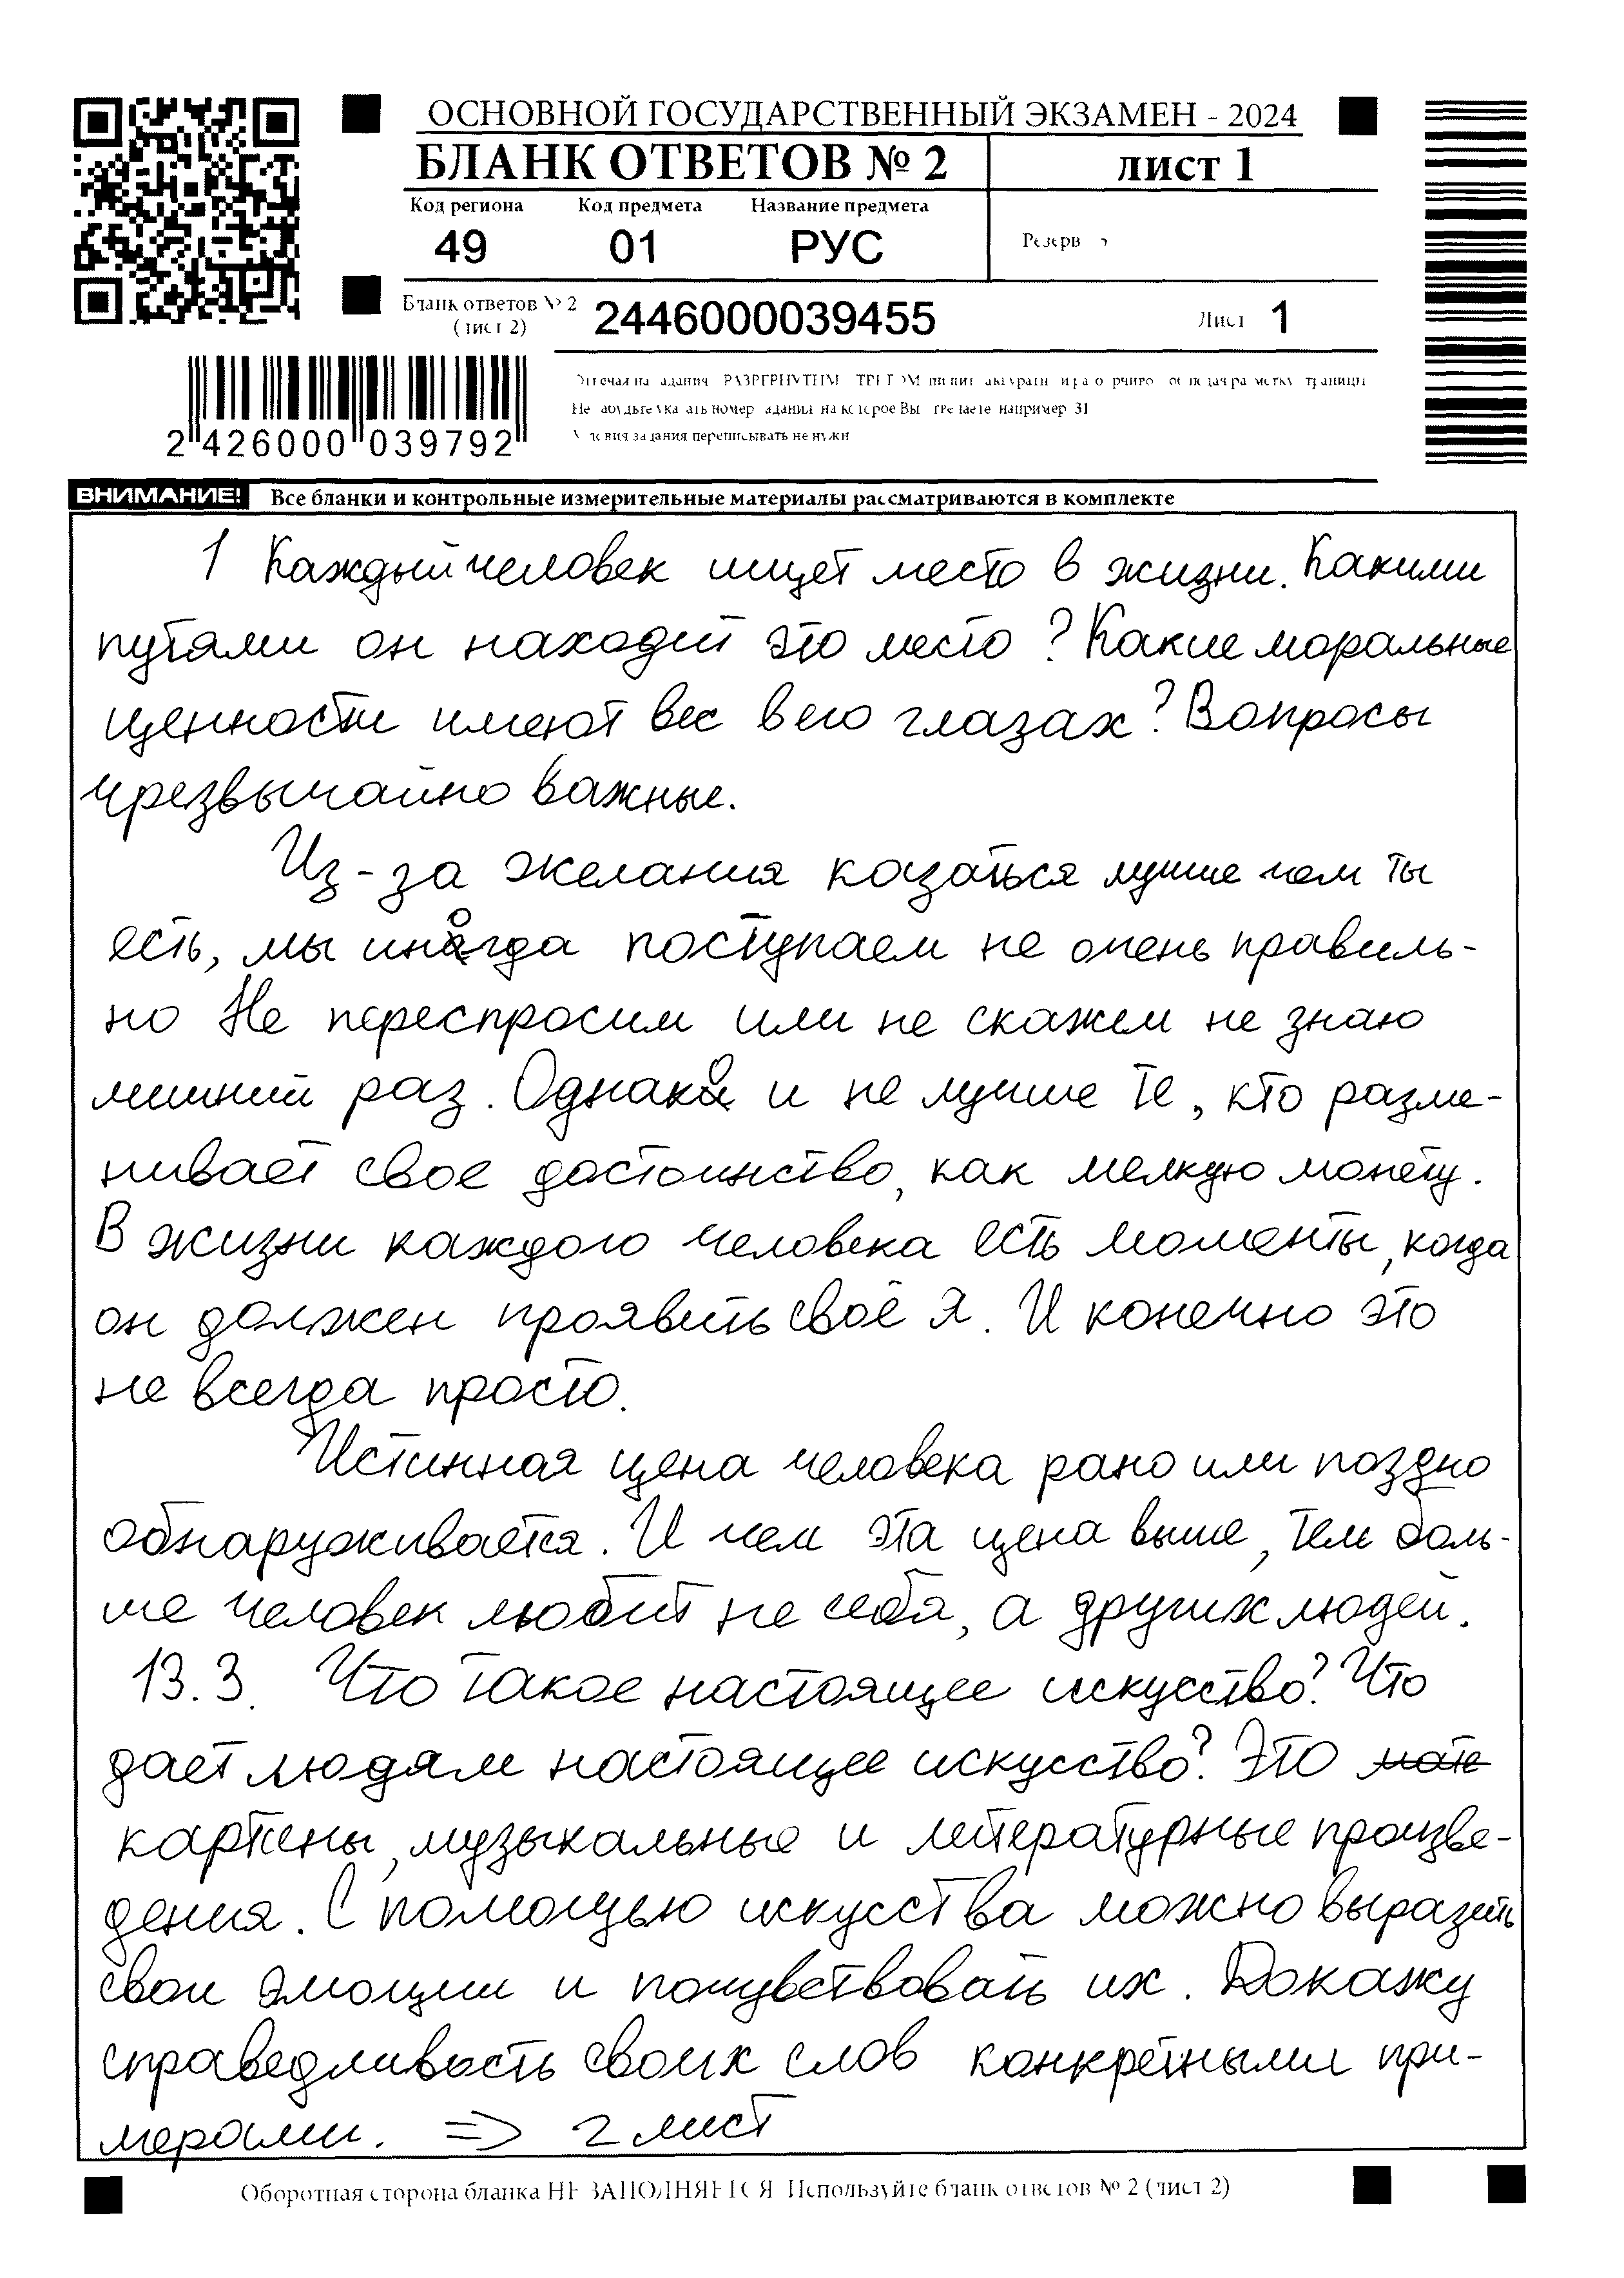 ОСНОВНОЙ ГОСУДАРСТВЕННЫЙ ЭКЗАМЕН - 2024
БЛАНК ОТВЕТОВ № 2
ЛИСТ 1
Код региона Код предмета Название предмета
49 01 РУС
Резерв
Бланк ответов № 2
(лист 2)
2446000039455
Лист 1
2 426000 039792
ВНИМАНИЕ! Все бланки и контрольные измерительные материалы рассматриваются в комплекте
1 Каждый человек ищет место в жизни. Какими
путями он находит это место? Какие моральные
ценности имеют вес в его глазах? Вопросы
чрезвычайно важные.
Из-за желания казаться лучше чем ты
есть, мы иногда поступаем не очень правиль-
но Не переспросим или не скажем не знаю
лишний раз. Однако и не лучше те, кто разме-
нивает свое достоинство, как мелкую монету.
В жизни каждого человека есть моменты, когда
он должен проявить своё Я. И конечно это
не всегда просто.
Истинная цена человека рано или поздно
обнаруживается. И чем эта цена выше, тем боль-
ше человек любит не себя, а других людей.
13.3. Что такое настоящее искусство? Что
дает людям настоящее искусство? Это
картены, музыкальные и литературные произве-
дения. С помощью искусства можно выразить
свои эмоции и почувствовать их. Докажу
справедливость своих слов конкретными при-
мерами. => 2 лист
Оборотная сторона бланка НЕ ЗАПОЛНЯЕТСЯ. Используйте бланк ответов № 2 (лист 2)